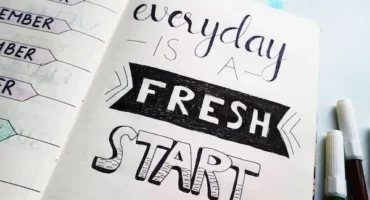 EMBER
MBER
BER
ER
everyday
IS A
FRESH
START